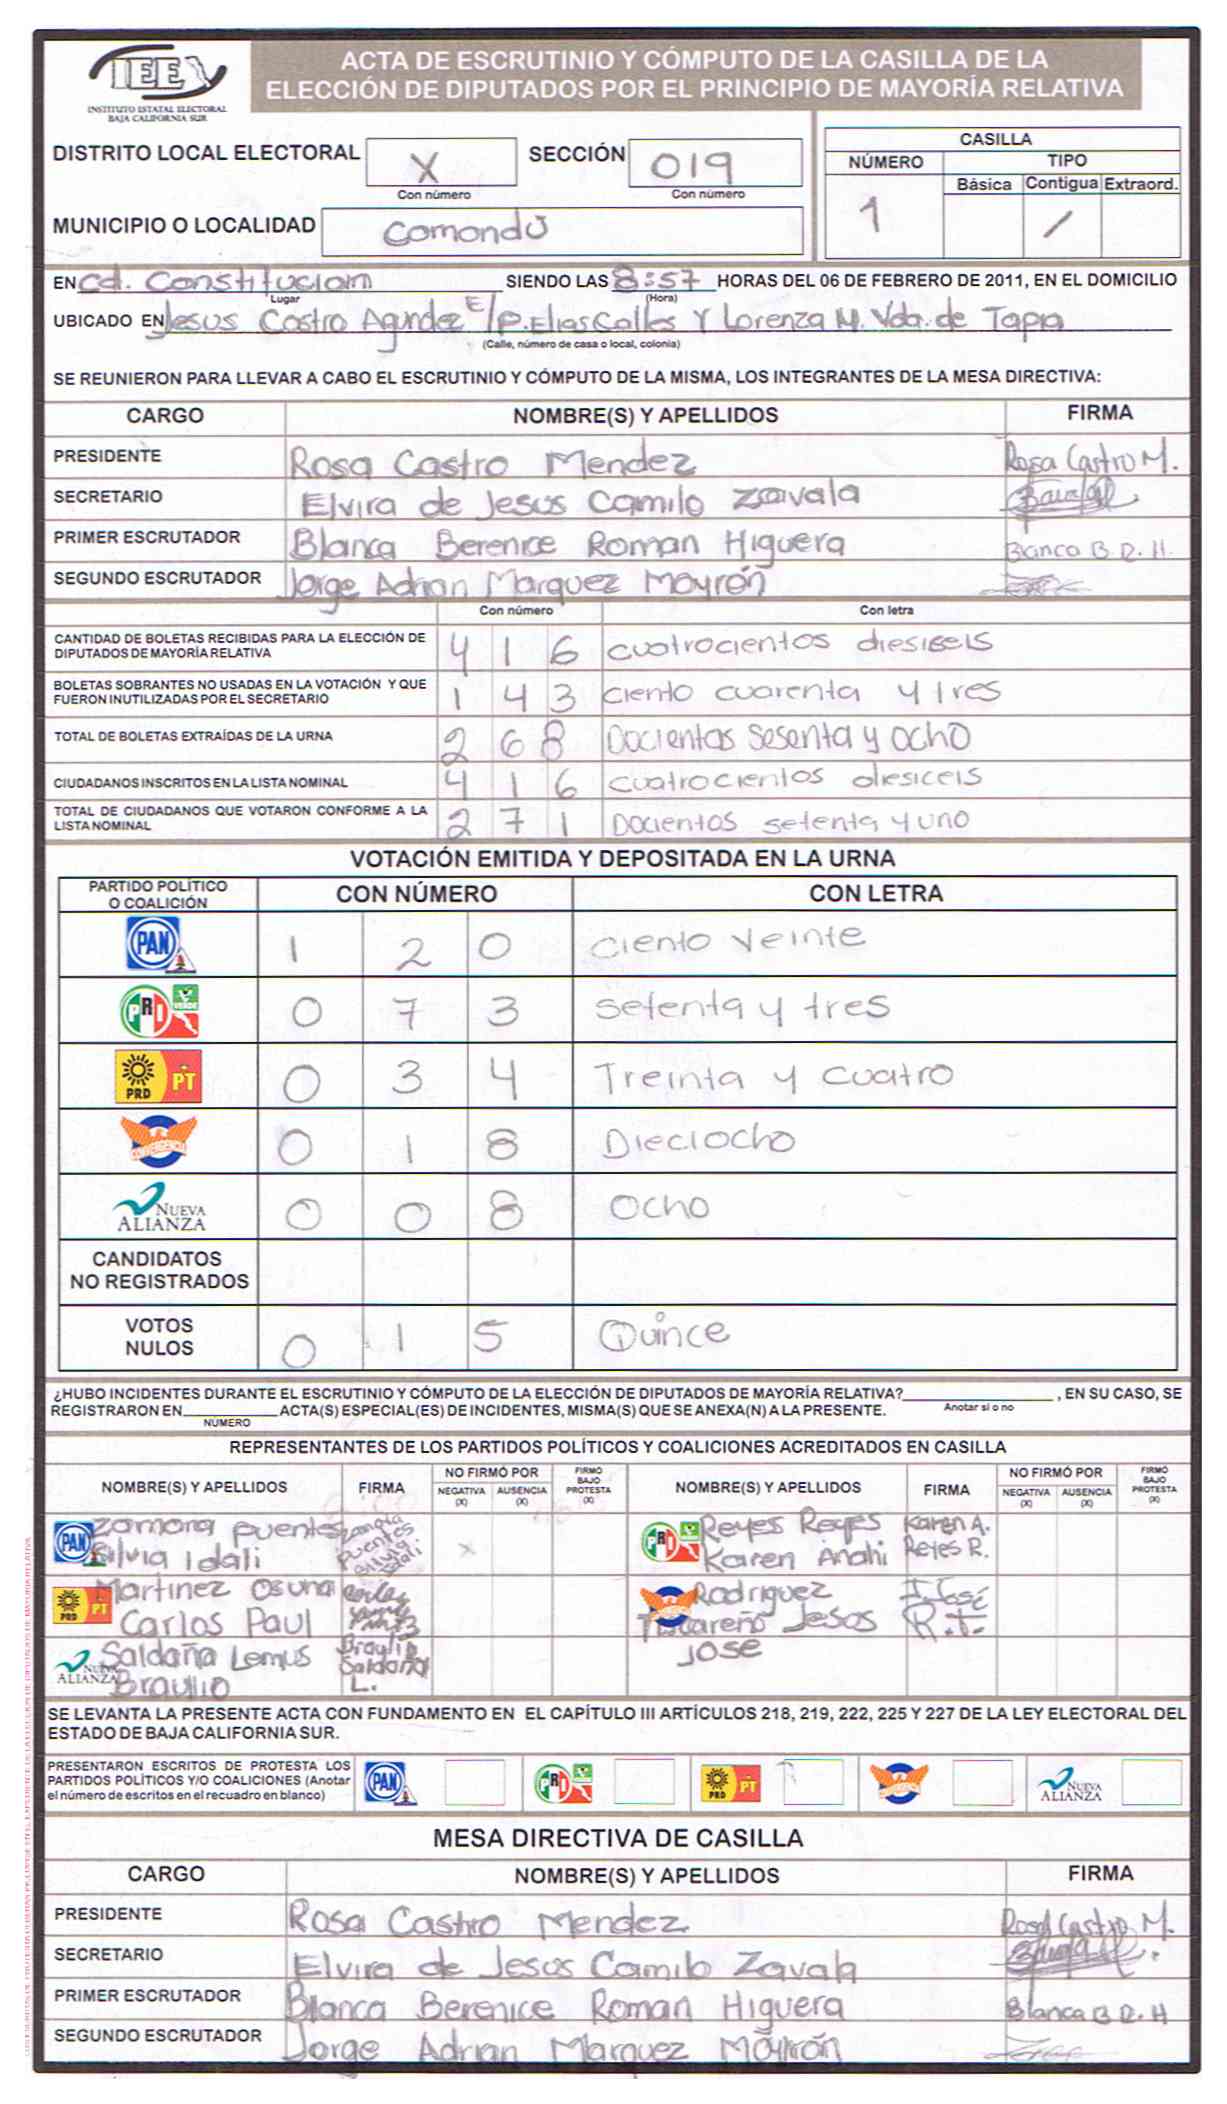 IEEX
INSTITUTO ESTATAL ELECTORAL
BAJA CALIFORNIA SUR
ACTA DE ESCRUTINIO Y CÓMPUTO DE LA CASILLA DE LA
ELECCIÓN DE DIPUTADOS POR EL PRINCIPIO DE MAYORÍA RELATIVA
DISTRITO LOCAL ELECTORAL X SECCIÓN 019
Con número Con número
MUNICIPIO O LOCALIDAD Comondú
CASILLA
NÚMERO TIPO
Básica Contigua Extraord.
1 /
EN Cd. Constitucion SIENDO LAS 8:57 HORAS DEL 06 DE FEBRERO DE 2011, EN EL DOMICILIO
Lugar (Hora)
UBICADO EN Jesus Castro Agundez E/P. Elias Calles Y Lorenza M. Vda. de Tapia
(Calle, número de casa o local, colonia)
SE REUNIERON PARA LLEVAR A CABO EL ESCRUTINIO Y CÓMPUTO DE LA MISMA, LOS INTEGRANTES DE LA MESA DIRECTIVA:
CARGO NOMBRE(S) Y APELLIDOS FIRMA
PRESIDENTE Rosa Castro Mendez Rosa Castro M.
SECRETARIO Elvira de Jesus Camilo Zavala
PRIMER ESCRUTADOR Blanca Berenice Roman Higuera Blanca B. R. H.
SEGUNDO ESCRUTADOR Jorge Adrian Marquez Mayrón
Con número Con letra
CANTIDAD DE BOLETAS RECIBIDAS PARA LA ELECCIÓN DE
DIPUTADOS DE MAYORÍA RELATIVA 4 1 6 cuatrocientos diesiseis
BOLETAS SOBRANTES NO USADAS EN LA VOTACIÓN Y QUE
FUERON INUTILIZADAS POR EL SECRETARIO 1 4 3 ciento cuarenta y tres
TOTAL DE BOLETAS EXTRAÍDAS DE LA URNA 2 6 8 Docientas sesenta y ocho
CIUDADANOS INSCRITOS EN LA LISTA NOMINAL 4 1 6 cuatrocientos diesiceis
TOTAL DE CIUDADANOS QUE VOTARON CONFORME A LA
LISTA NOMINAL 2 7 1 Docientos setenta y uno
VOTACIÓN EMITIDA Y DEPOSITADA EN LA URNA
PARTIDO POLÍTICO
O COALICIÓN CON NÚMERO CON LETRA
PAN 1 2 0 Ciento Veinte
PRI VERDE 0 7 3 Setenta y tres
PRD PT 0 3 4 Treinta y cuatro
CONVERGENCIA 0 1 8 Dieciocho
NUEVA ALIANZA 0 0 8 Ocho
CANDIDATOS
NO REGISTRADOS
VOTOS
NULOS 0 1 5 Quince
¿HUBO INCIDENTES DURANTE EL ESCRUTINIO Y CÓMPUTO DE LA ELECCIÓN DE DIPUTADOS DE MAYORÍA RELATIVA? , EN SU CASO, SE
Anotar si o no
REGISTRARON EN ACTA(S) ESPECIAL(ES) DE INCIDENTES, MISMA(S) QUE SE ANEXA(N) A LA PRESENTE.
NÚMERO
REPRESENTANTES DE LOS PARTIDOS POLÍTICOS Y COALICIONES ACREDITADOS EN CASILLA
NOMBRE(S) Y APELLIDOS FIRMA NO FIRMÓ POR NEGATIVA (X) AUSENCIA (X) FIRMÓ BAJO PROTESTA (X) NOMBRE(S) Y APELLIDOS FIRMA NO FIRMÓ POR NEGATIVA (X) AUSENCIA (X) FIRMÓ BAJO PROTESTA (X)
PAN Zamora puentes Silvia Idali Zamora puentes Silvia Idali x
PRI Reyes Reyes Karen Anahi Karen A. Reyes R.
PRD PT Martinez Osuna Carlos Paul
Rodriguez Jesus José J. José R.T.
NUEVA ALIANZA Saldaña Lemus Braulio Braulio Saldaña L.
SE LEVANTA LA PRESENTE ACTA CON FUNDAMENTO EN EL CAPÍTULO III ARTÍCULOS 218, 219, 222, 225 Y 227 DE LA LEY ELECTORAL DEL
ESTADO DE BAJA CALIFORNIA SUR.
PRESENTARON ESCRITOS DE PROTESTA LOS
PARTIDOS POLÍTICOS Y/O COALICIONES (Anotar
el número de escritos en el recuadro en blanco) PAN PRI PRD PT CONVERGENCIA NUEVA ALIANZA
MESA DIRECTIVA DE CASILLA
CARGO NOMBRE(S) Y APELLIDOS FIRMA
PRESIDENTE Rosa Castro Mendez Rosa Castro M.
SECRETARIO Elvira de Jesus Camilo Zavala
PRIMER ESCRUTADOR Blanca Berenice Roman Higuera Blanca B R. H
SEGUNDO ESCRUTADOR Jorge Adrian Marquez Mayrón